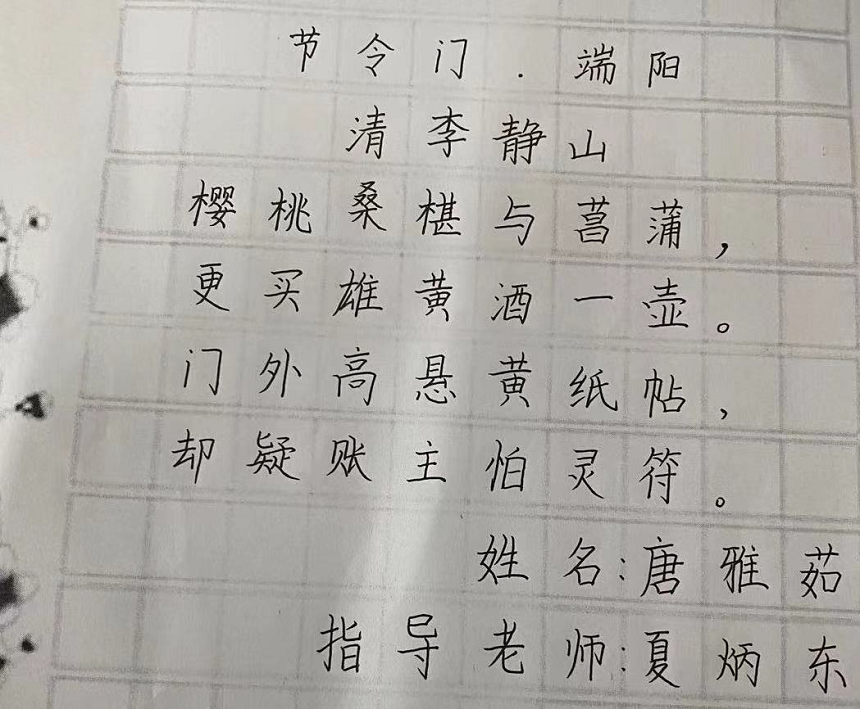 节令门.端阳
清李静山
樱桃桑椹与菖蒲，
更买雄黄酒一壶。
门外高悬黄纸帖，
却疑账主怕灵符。
姓名:唐雅茹
指导老师:夏炳东